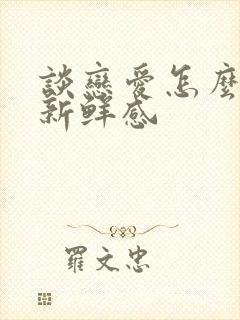 談戀愛怎麼
新鮮感
羅文忠